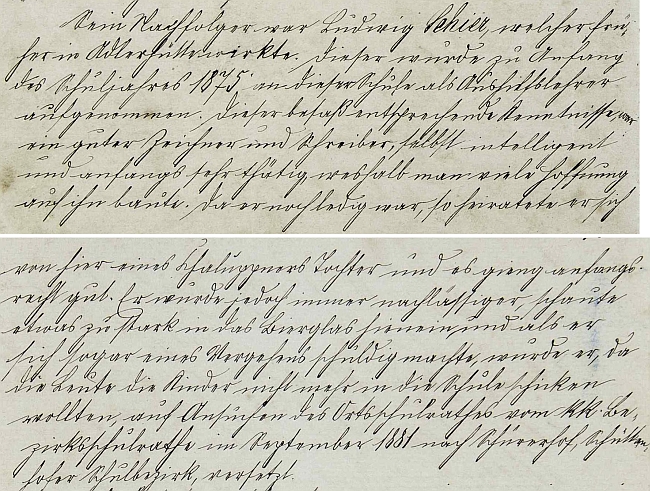 Sein Nachfolger war Ludwig Schier, welcher frü-
her in Adlerhütte wirkte. Dieser wurde zu Anfang
des Schuljahres 1875, an dieser Schule als Aushilfslehrer
aufgenommen. Dieser besaß entsprechende Kenntnisse, war
ein guter Zeichner und Schreiber, selbst intelligent
und anfangs sehr thätig, weshalb man viele Hoffnung
auf ihn baute. Da er noch ledig war, so heiratete er sich
von hier eines Chaluppners Tochter und es gieng anfangs
recht gut. Er wurde jedoch immer nachlässiger, schaute
etwas zu stark in das Bierglas hienein und als er
sich sogar eines Vergehens schuldig machte, wurde er, da
die Leute die Kinder nicht mehr in die Schule schicken
wollten, auf Ansuchen des Ortsschulrathes vom kk. Be-
zirksschulrathe im September 1881 nach Schürerhof, Schütten-
hofer Schulbezirk, versetzt.